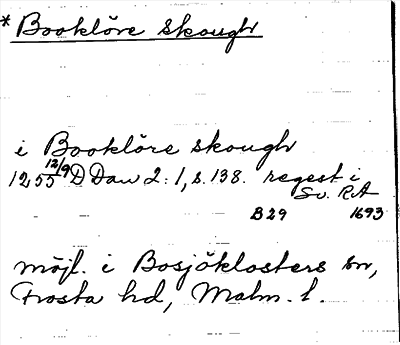 * Booklöre skough
i Booklöre skough
1255 12/9 D Dan 2:1, s. 138. regest i
Sv. RA
B29 1693
möjl. i Bosjöklosters sn,
Frosta hd, Malm. l.